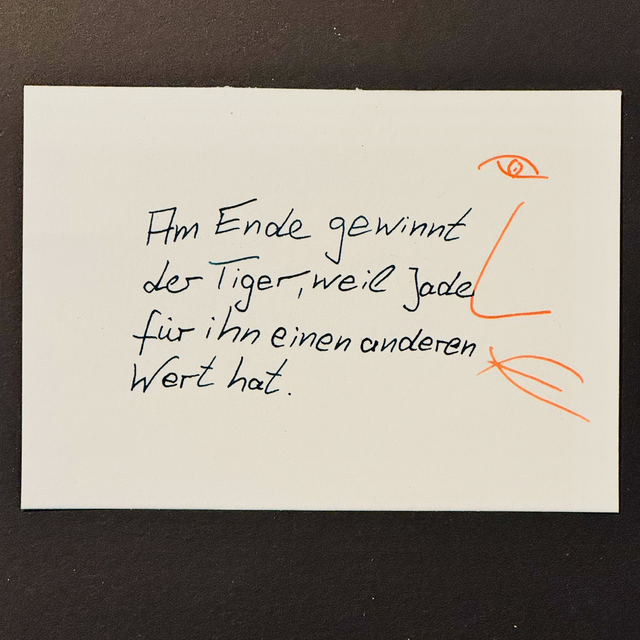 Am Ende gewinnt
der Tiger, weil Jade
für ihn einen anderen
Wert hat.